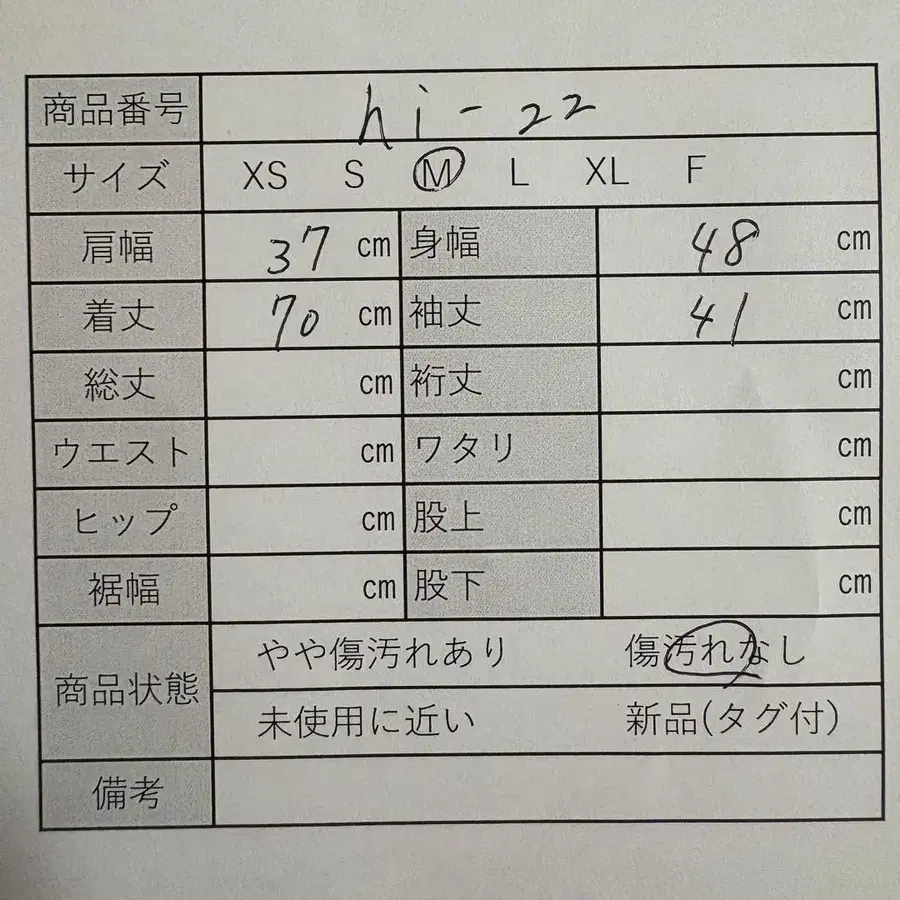 商品番号 hi-22
サイズ XS S M L XL F
肩幅 37 cm 身幅 48 cm
着丈 70 cm 袖丈 41 cm
総丈 cm 裄丈 cm
ウエスト cm ワタリ cm
ヒップ cm 股上 cm
裾幅 cm 股下 cm
商品状態 やや傷汚れあり 傷汚れなし
未使用に近い 新品(タグ付)
備考